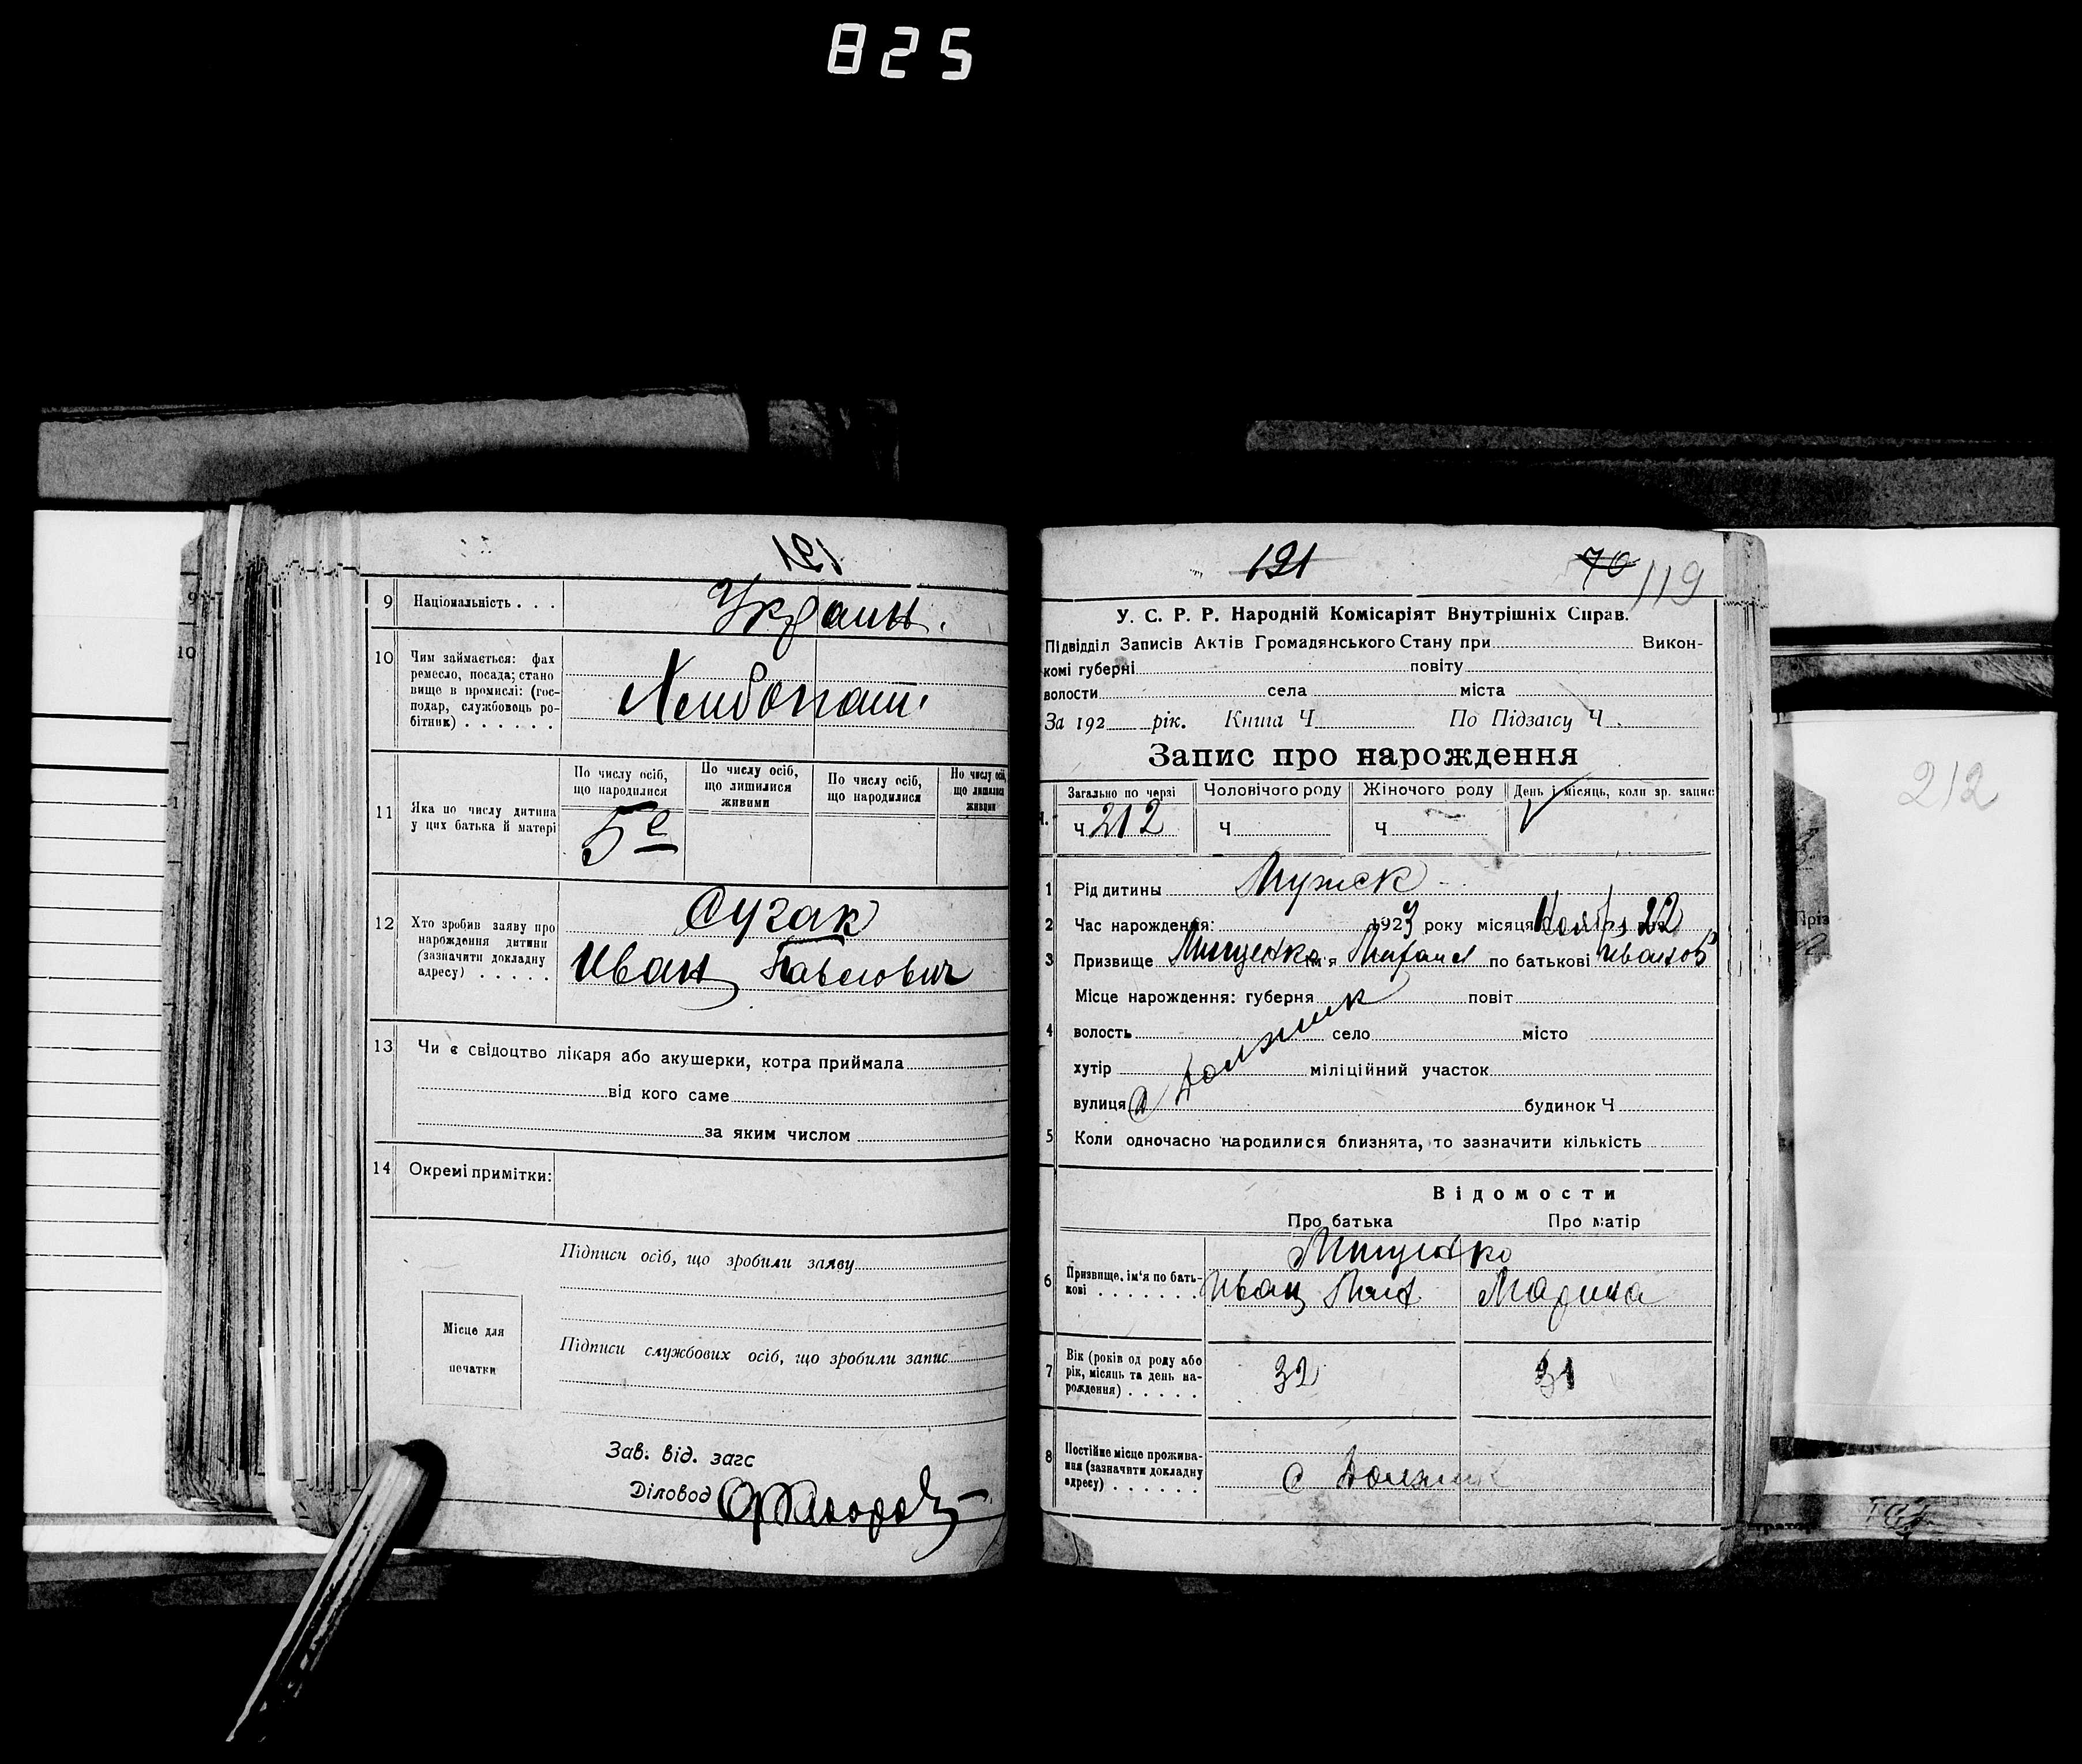 825
121
9 Національність . . . Украин.
10 Чим займається: фах
ремесло, посада; стано
вище в промислі: (гос-
подар, службовець ро-
бітник) . . . . . .
Хлибопаш.
11 Яка по числу дитина
у цих батька й матері
По числу осіб,
що народилися
5е
По числу осіб,
що лишилися
живими
По числу осіб,
що народилися
По числу осіб,
що лишилися
живими
12 Хто зробив заяву про
нарождення дитини
(зазначити докладну
адресу) . . . . .
Сугак
Иван Павлович
13 Чи є свідоцтво лікаря або акушерки, котра приймала
від кого саме
за яким числом
14 Окремі примітки:
Підписи осіб, що зробили заяву
Місце для
печатки
Підписи службових осіб, що зробили запис
Зав. від. загс
Діловод
121 70 119
У. С. Р. Р. Народній Комісаріят Внутрішніх Справ.
Підвідділ Записів Актів Громадянського Стану при Викон-
комі губерні повіту
волости села міста
За 192 рік. Книга Ч По Підзагсу Ч
Запис про нарождення
Загально по черзі Чоловічого роду Жіночого роду День і місяць, коли зр. запис
Ч 212 Ч Ч
1 Рід дитини Мужск
2 Час нарождення: 1923 року місяця Ноябр 22
3 Призвище Мищенко ім'я Михаил по батькові Иванов
Місце нарождення: губерня повіт
4 волость село місто
хутір міліційний участок
вулиця с Должик будинок Ч
5 Коли одночасно народилися близнята, то зазначити кількість
Відомости
Про батька Про матір
Мищенко
6 Призвище, ім'я по бать-
кові . . . . . . .
Иван Марина
7 Вік (років од роду або
рік, місяць та день на-
рождення) . . . . .
32 31
8 Постійне місце прожива-
ння (зазначити докладну
адресу) . . . . . .
с Должик
212